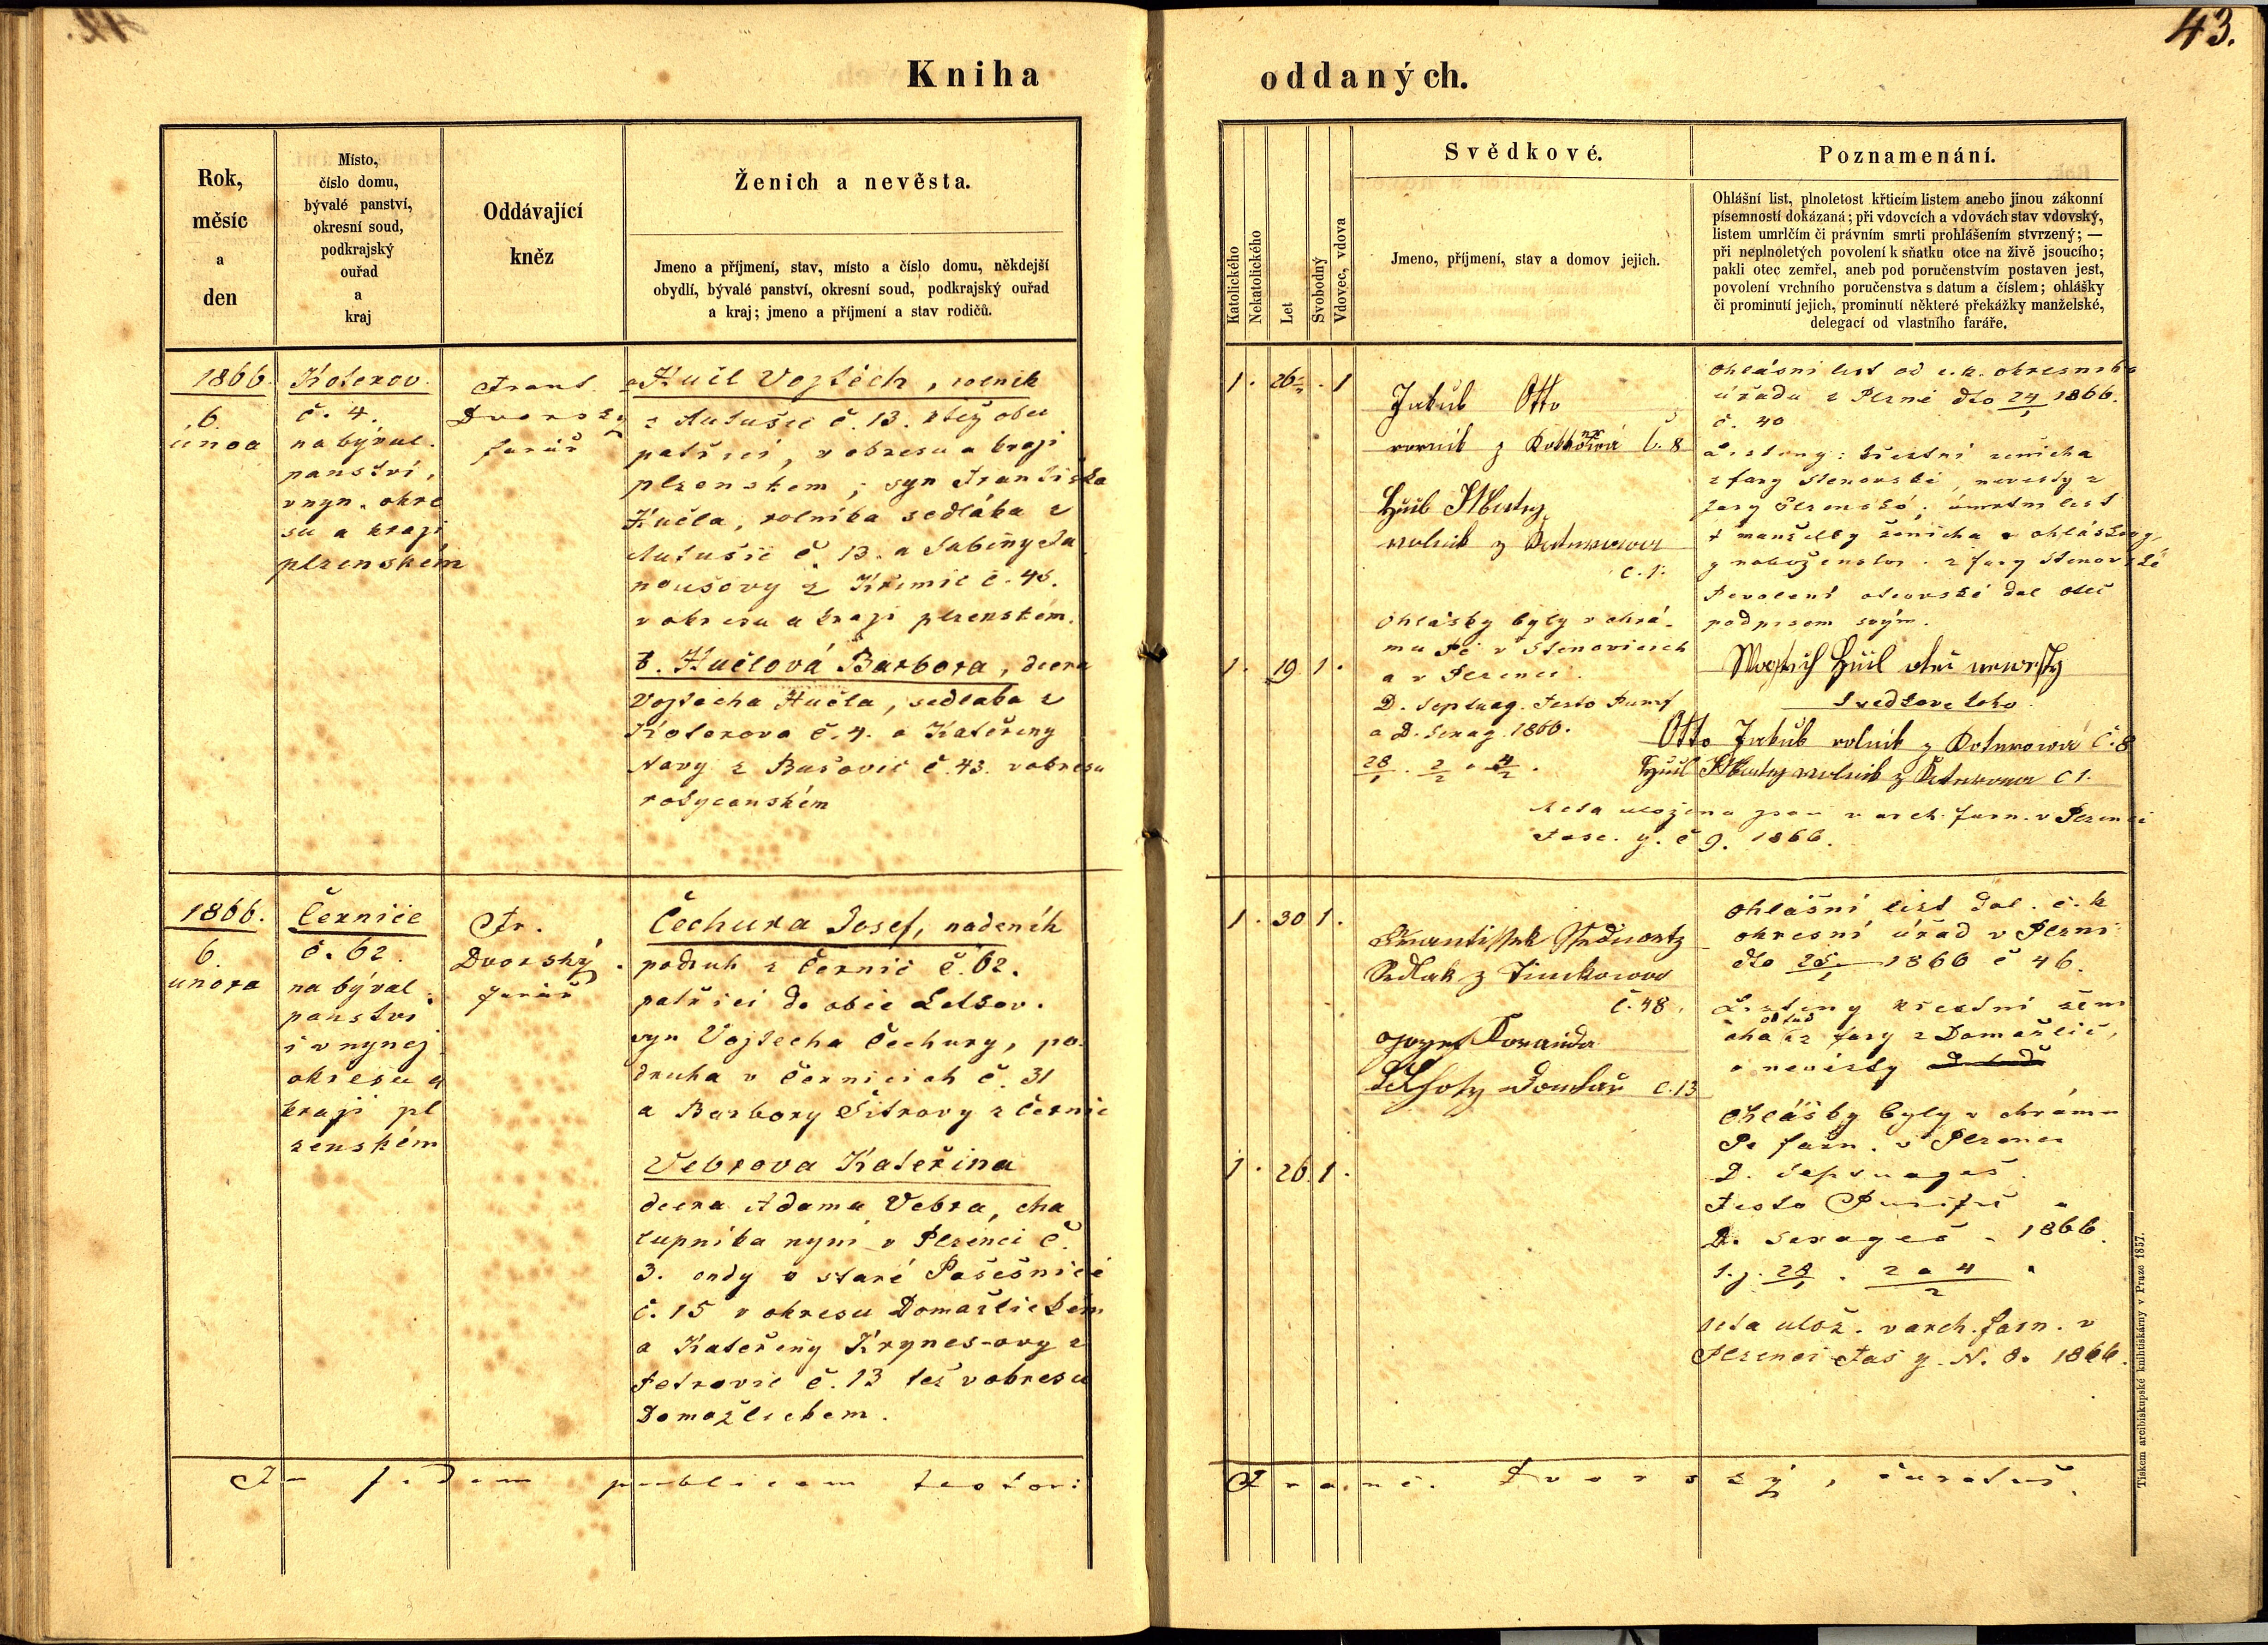 43.
Kniha oddaných.
Rok,
měsíc
a
den
Místo,
číslo domu,
bývalé panství,
okresní soud,
podkrajský
ouřad
a
kraj
Oddávající
kněz
Ženich a nevěsta.
Jmeno a příjmení, stav, místo a číslo domu, někdejší
obydlí, bývalé panství, okresní soud, podkrajský ouřad
a kraj; jmeno a příjmení a stav rodičů.
Katolického
Nekatolického
Let
Svobodný
Vdovec, vdova
Svědkové.
Jmeno, příjmení, stav a domov jejich.
Poznamenání.
Ohlášní list, plnoletost křticím listem anebo jinou zákonní
písemností dokázaná; při vdovcích a vdovách stav vdovský,
listem umrlčím či právním smrti prohlášením stvrzený; —
při neplnoletých povolení k sňatku otce na živě jsoucího;
pakli otec zemřel, aneb pod poručenstvím postaven jest,
povolení vrchního poručenstva s datum a číslem; ohlášky
či prominutí jejich, prominutí některé překážky manželské,
delegací od vlastního faráře.
1866.
6.
únoa
Koterov.
č. 4.
na býval.
panství,
v nyn. okre
su a kraji
plzenském
Frant.
Dvorský
farář
Hučl Vojtěch, rolník
č. 13.
patřící, v okresu a kraji
plzenskem, syn Františka
Hučla, rolníka sedláka z
č 13. a Sabiny Ja
noušovy z Křimic č. 45.
v okresu a kraji plzenském.
b. Hučlová Barbora, dcera
Vojtěcha Hučla, sedláka z
Koterova č. 4. a Kateřiny
č. 43. v okresu
rokycanském
1. 26 . 1
1. 19 1.
Jakub Otto
rornik z č. 8
rolnik z
č. 1.
Ohlášky byly v chrá-
mu Pě v Stenovicich
a v Plzenci.
D. Septuag. Festo Purif
a D. Sexag. 1866.
28/1 . 2/2 a 4/2 .
Ohlásni list od c. k. okresniho
úřadu z Plzně dto 24/1 1866.
č. 40
Listony: křestní ženicha
z fary Stenovské, nevesty z
fary Plzenské; úmrtní list
† manželky ženicha a ohlášky
z fary Stenovské
Povolení otcovské dal otec
podpisem svým.
otec
Svedkove toho
Otto Jakub rolnik z Koterowa č. 8
č 1.
uložena jsou v arch. farn. v Plzenci
Fasc. y. č 9. 1866.
1866.
6.
unora
Černice
č. 62.
na býval.
panství
i v nynej.
okresu a
kraji pl
zenském
Fr.
Dvorský.
farář
Čechura Josef, nadeník
podruh z Černic č. 62.
patřící do obce
syn Vojtecha Čechury, po
druha v Černicich č. 31
a Barbory Šitrovy z Černic
Vebrova Kateřina
dcera Adama Vebra, cha
lupníka nyni v Plzenci č.
3. ondy v staré Pošešnice
č. 15 v okresu Domažlickem
a Kateřiny Krynes-ovy z
Petrovic č. 13 též v okresu
Domažlickem.
1. 30 1.
1. 26. 1.
Sedlak z
č. 48.
Jozef Koranda
Domkař č. 13
Ohlášní list dal. c. k
okresní úřad v Plzni
dto 25/1 1866 č 46.
Listony křestní ženi
odtud
cha z fary z Domažlic,
a nevisty
Ohlášky byly v chrámu
Pě farn. v Plzenci
D. Septuages.
Festo Purific a
D. Sexages . 1866.
t. j. 28/1 . 2 a 4/2 .
ulož. v arch. farn. v
Plzenci Fas y. N. 8. 1866.
In fidem publicam testor:
Franc. Dvorský, curatus.
Tiskem arcibiskupské knihtiskárny v Praze 1857.